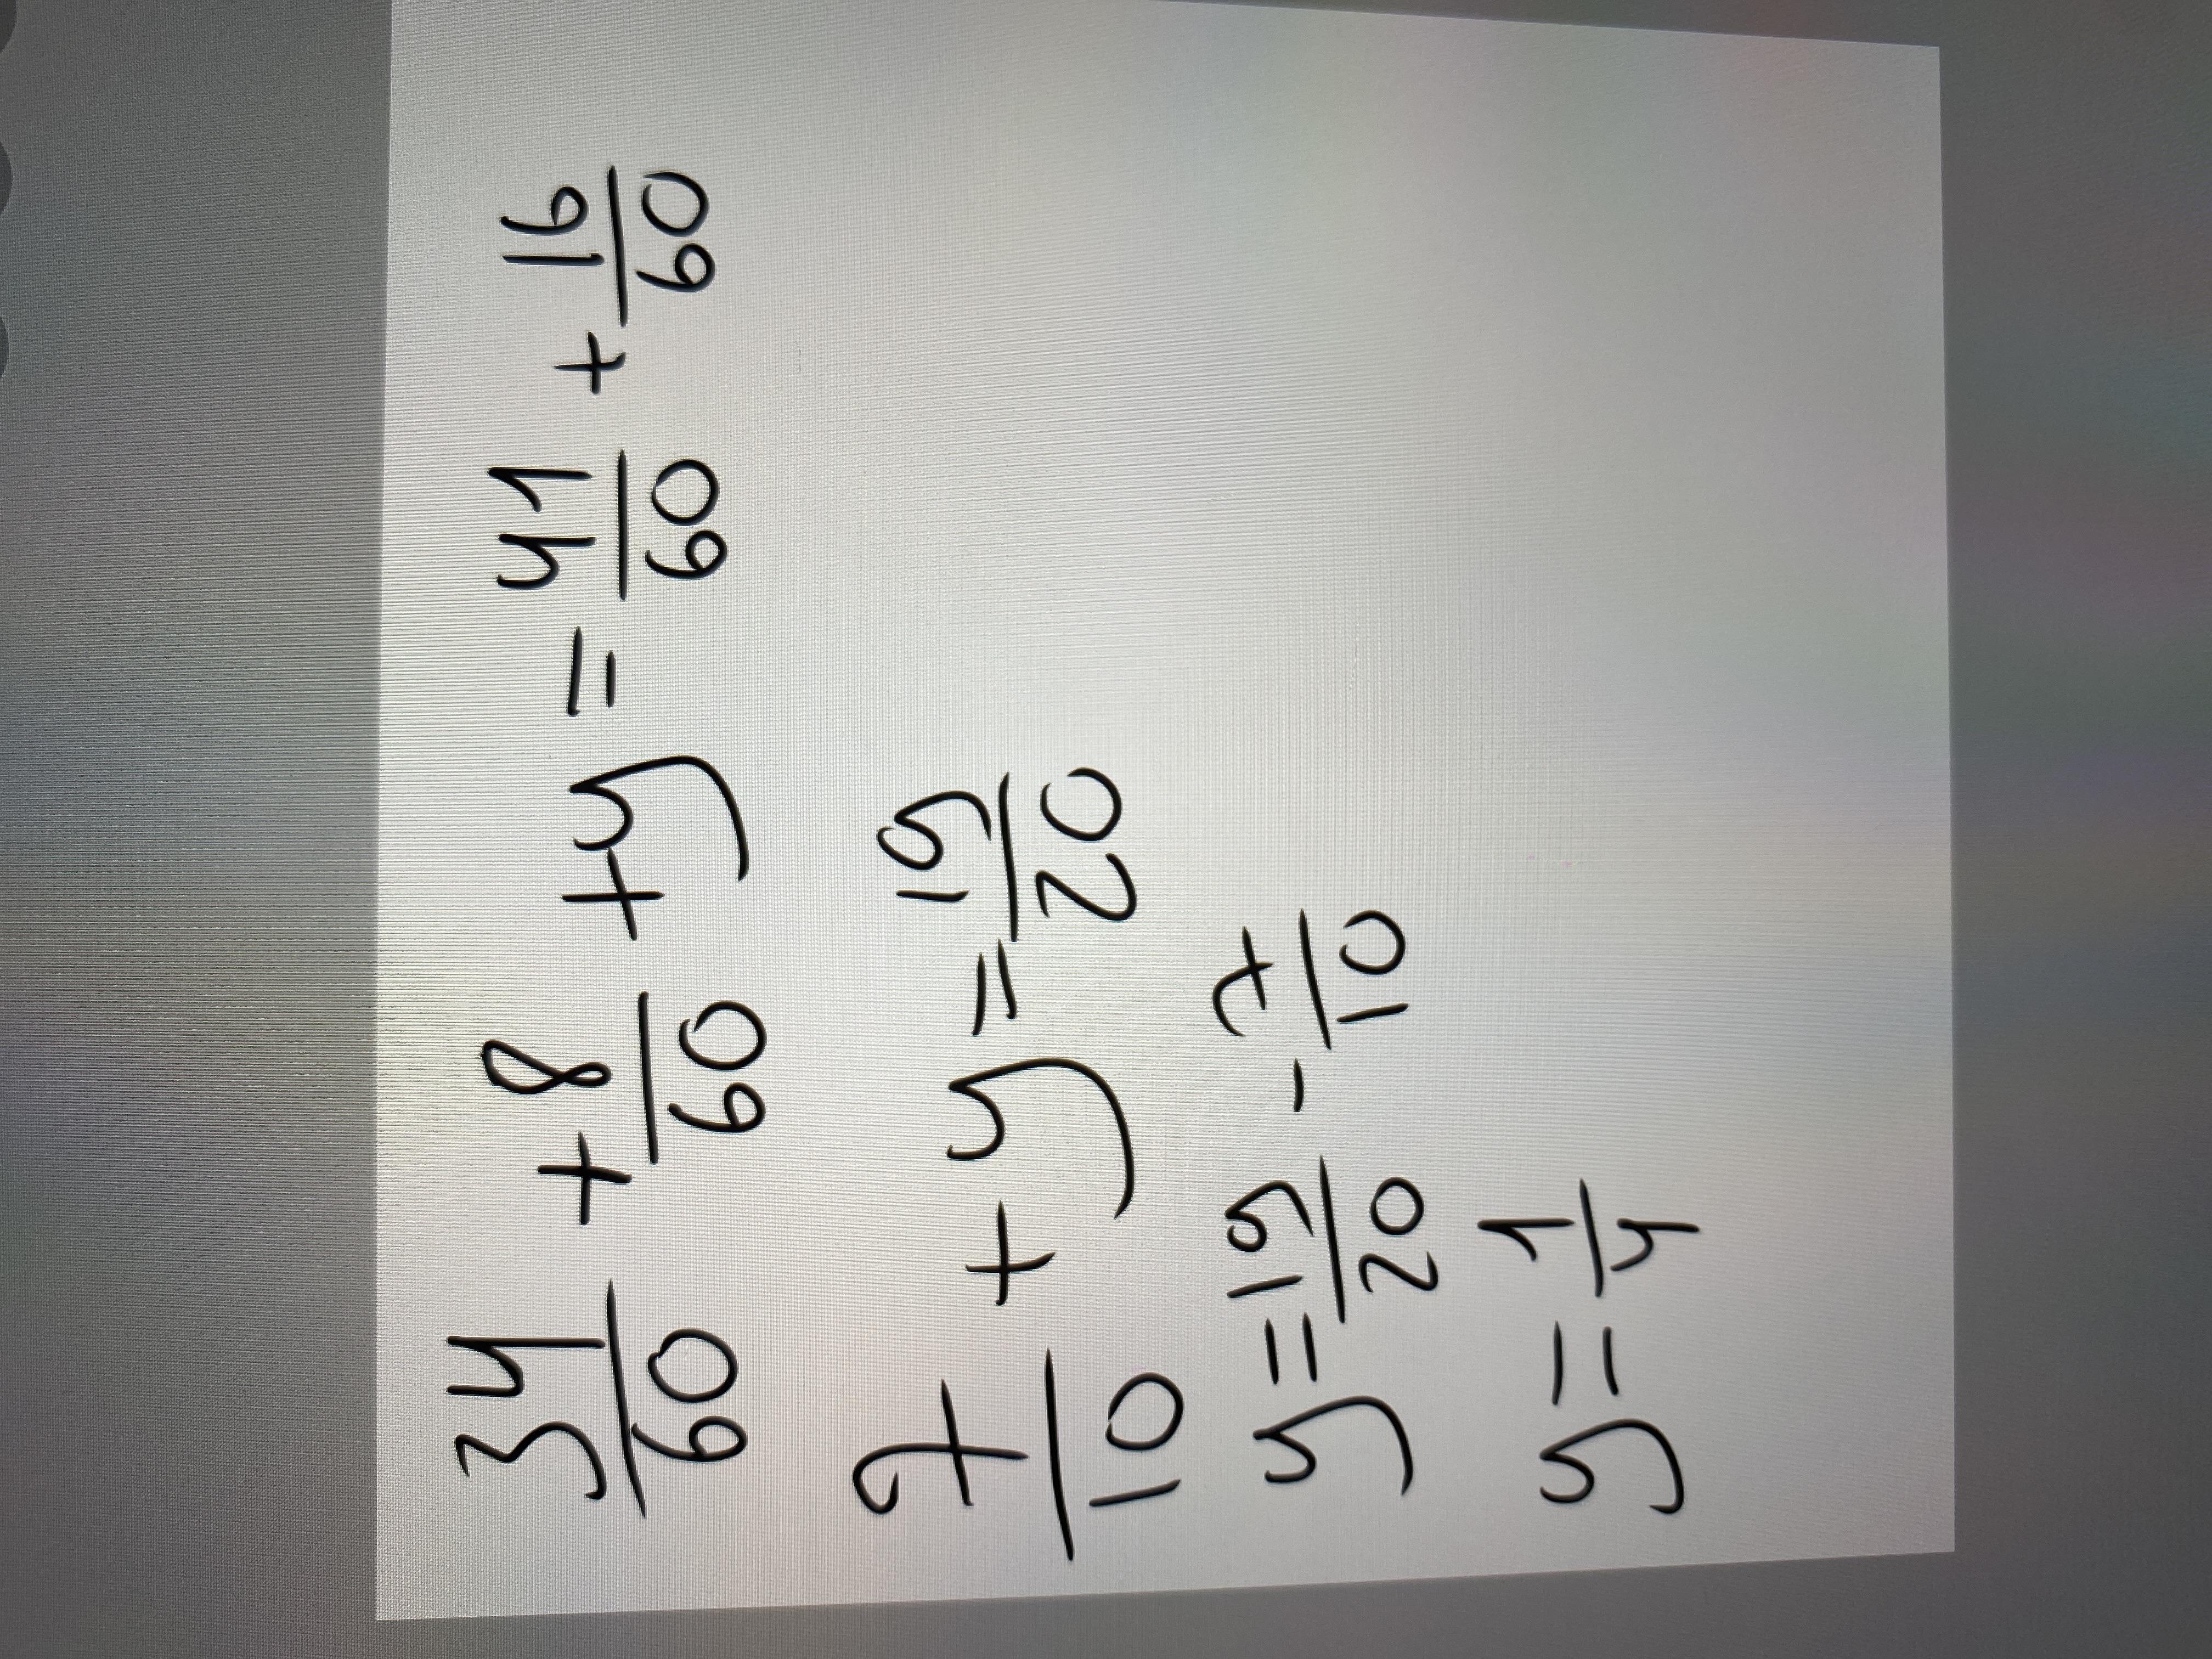 34/60 + 8/60 + y = 41/60 + 16/60
7/10 + y = 19/20
y = 19/20 - 7/10
y = 1/4